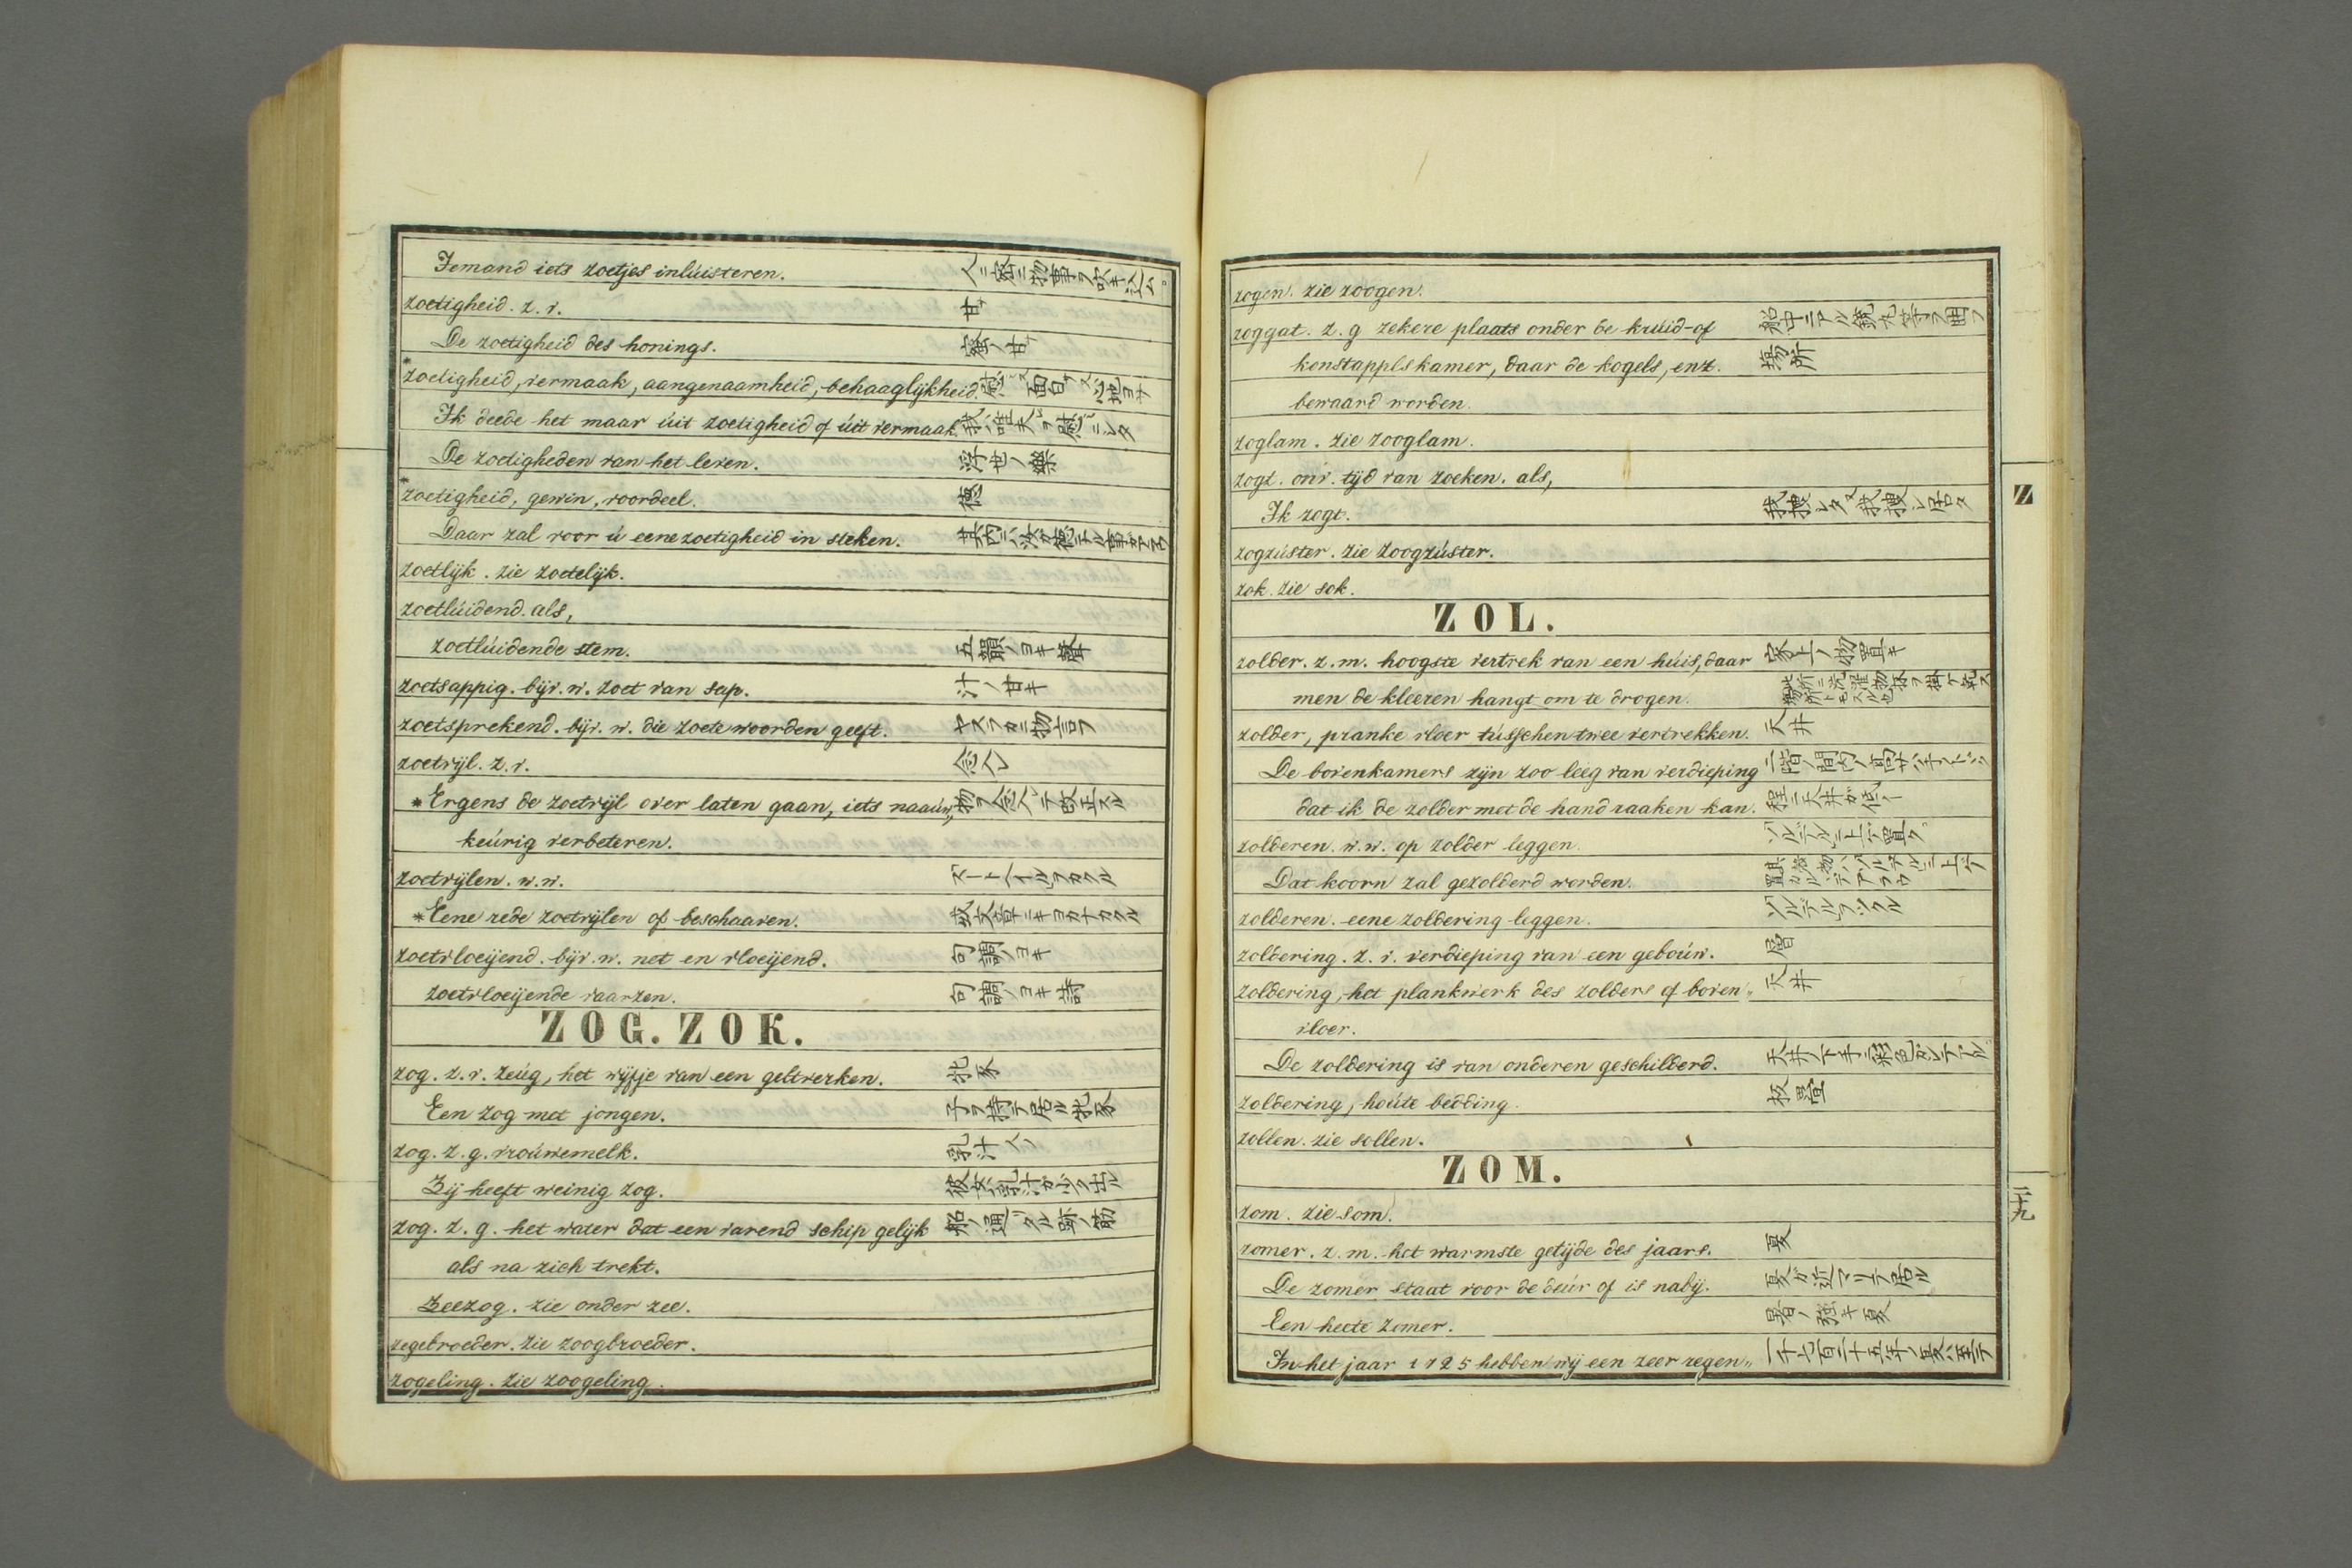 Iemand iets zoetjes inlúisteren. 人ニ密ニ物事ヲ吹キ込ム。
zoetigheid. z. v. 甘サ
De zoetigheid des honings. 蜜ノ甘サ
*zoetigheid, vermaak, aangenaamheid, behaaglijkheid. 面白サ 心地ヨサ
Ik deede het maar úit zoetigheid of úit vermaak. 我ハ唯夫ヲ慰ニシタ
De zoetigheden van het leven. 浮世ノ樂
*zoetigheid, gewin, voordeel. 徳
Daar zal voor ú eene zoetigheid in steken.
zoetlijk. zie zoetelijk.
zoetlúidend. als,
zoetlúidende stem. 五韻ノヨキ聲
zoetsappig. bijv. w. zoet van sap. 汁ノ甘キ
zoetsprekend. bijv. w. die zoete woorden geeft. ヤスラカニ物言フ
zoetvijl. z. v.
*Ergens de zoetvijl over laten gaan, iets naaúw„
keúrig verbeteren.
zoetvijlen. w. w.
*Eene rede zoetvijlen of beschaaven.
zoetvloeijend. bijv. w. net en vloeijend. 句調ノヨキ
zoetvloeijende vaarzen. 句調ノヨキ詩
ZOG. ZOK.
zog. z. v. zeúg, het wijfje van een geltverken. 牝豕
Een zog met jongen. 子ヲ持テ居ル牝豕
zog. z. g. vroúwemelk. 人ノ乳汁
Zij heeft weinig zog. 彼女ハ乳汁ガ少ク出ル
zog. z. g. het water dat een varend schip gelijk 船ノ通リタル跡ノ筋
als na zich trekt.
Zeezog. zie onder zee.
zogebroeder. zie zoogbroeder.
zogeling. zie zoogeling.
zogen. zie zoogen.
zoggat. z. g zekere plaats onder be krúid-of 船中ニアル銃丸等ヲ囲フ
konstappls kamer, daar de kogels, enz. 場所
bewaard worden.
zoglam. zie zooglam.
zogt. onv. tijd van zoeken. als,
Ik zogt. 我捜シタ 又我捜シ居タ
zogzúster. zie zoogzúster.
zok. zie sok.
ZOL.
zolder. z. m. hoogste vertrek van een húis, daar 家上ノ物置キ
men de kleeren hangt om te drogen. 此所ニ洗濯物抔ヲ掛ケ乾ス場所トモスル也
zolder, planke vloer tússchen twee vertrekken. 天井
De bovenkamers zijn zoo leeg van verdieping
dat ik de zolder met de hand raaken kan. 程ニ天井ガ低イ
zolderen. w. w. op zolder leggen. ソルデルニ上ゲ置ク
Dat koorn zal gezolderd worden.
zolderen. eene zoldering leggen. ソルデルヲツクル
zoldering. z. v. verdieping van een geboúw. 層
zoldering, het plankwerk des zolders of boven„ 天井
vloer.
De zoldering is van onderen geschilderd. 天井ノ下手ニ彩色ガシテアル
zoldering, hoúte bedding. 板畳
zollen. zie sollen.
ZOM.
zom. zie som.
zomer. z. m. het warmste getijde des jaars. 夏
De zomer staat voor de deúr of is nabij. 夏ガ近マリテ居ル
Een heete zomer. 暑ノ強キ夏
In het jaar 1725 hebben wij een zeer regen„ 一千七百二十五年ノ夏ハ至テ
Z